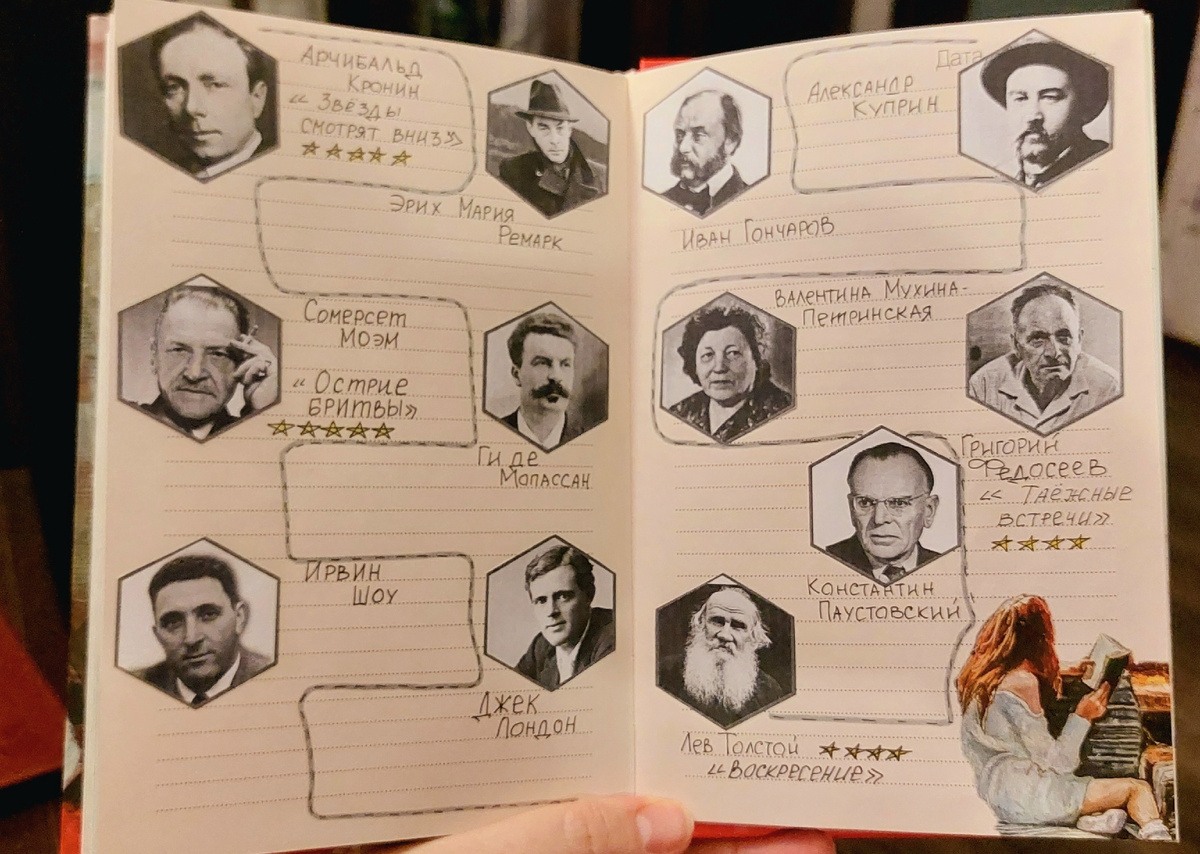 Арчибальд
Кронин
« Звёзды
смотрят вниз»
Эрих Мария
Ремарк
Сомерсет
Моэм
« Острие
бритвы»
Ги де
Мопассан
Ирвин
Шоу
Джек
Лондон
Дата
Александр
Куприн
Иван Гончаров
Валентина Мухина-
Петринская
Григорий
Федосеев
« Таёжные
встречи»
Константин
Паустовский
Лев Толстой
«Воскресение»